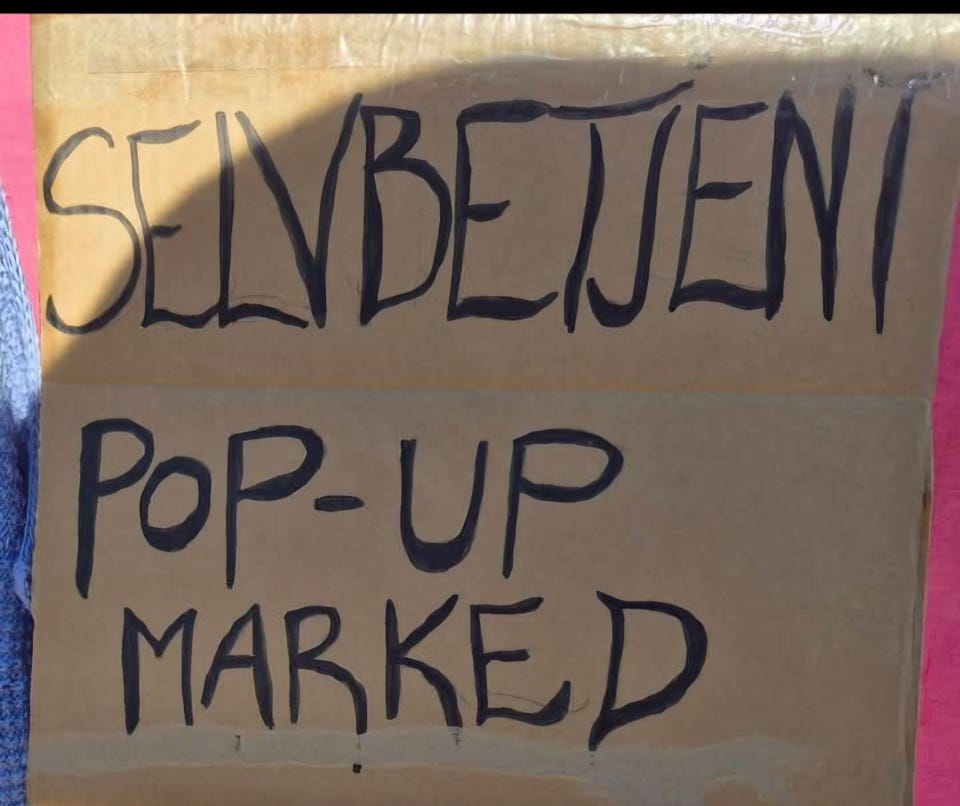 SELVBETJENT
POP-UP
MARKED